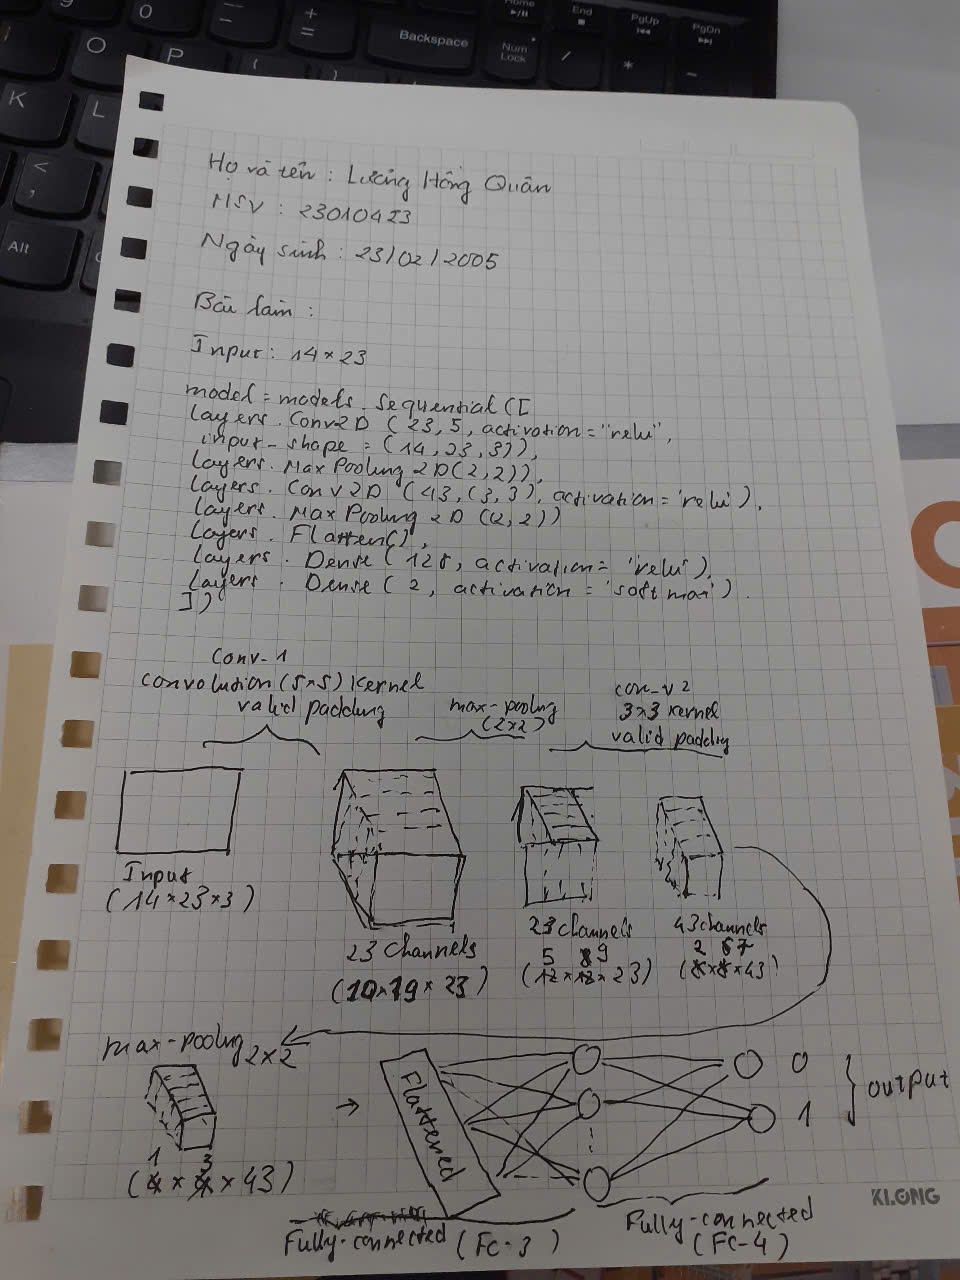 Home
End
PgUp
PgDn
9
0
O
P
K
L
Backspace
Num
Lock
/
*
-
+
=
<
,
Alt
Họ và tên : Lương Hồng Quân
MSV : 23010423
Ngày sinh : 23/02/2005
Bài làm :
Input : 14 × 23
model = models . Sequential ([
layers . Conv2D ( 23, 5, activation = "relu",
input - shape = (14, 23, 3)),
layers. MaxPooling 2D(2,2)),
layers . Conv2D (43, (3,3), activation = 'relu'),
layers . MaxPooling 2D ((2,2))
layers . Flatten(),
layers . Dense ( 128, activation = 'relu'),
layers . Dense ( 2, activation = 'softmax') .
])
Conv-1
convolution (5×5) kernel
valid padding
max-pooling
(2×2)
con-v2
3×3 kernel
valid padding
Input
(14×23×3)
23 channels
(10×19×23)
23 channels
5 9
(12×12×23)
43 channels
2 7
(8×8×43)
max-pooling 2×2
1 3
(4 × 4 × 43)
→
Flattened
0
1
output
Fully-connected (Fc-3)
Fully-connected
(Fc-4)
KLONG